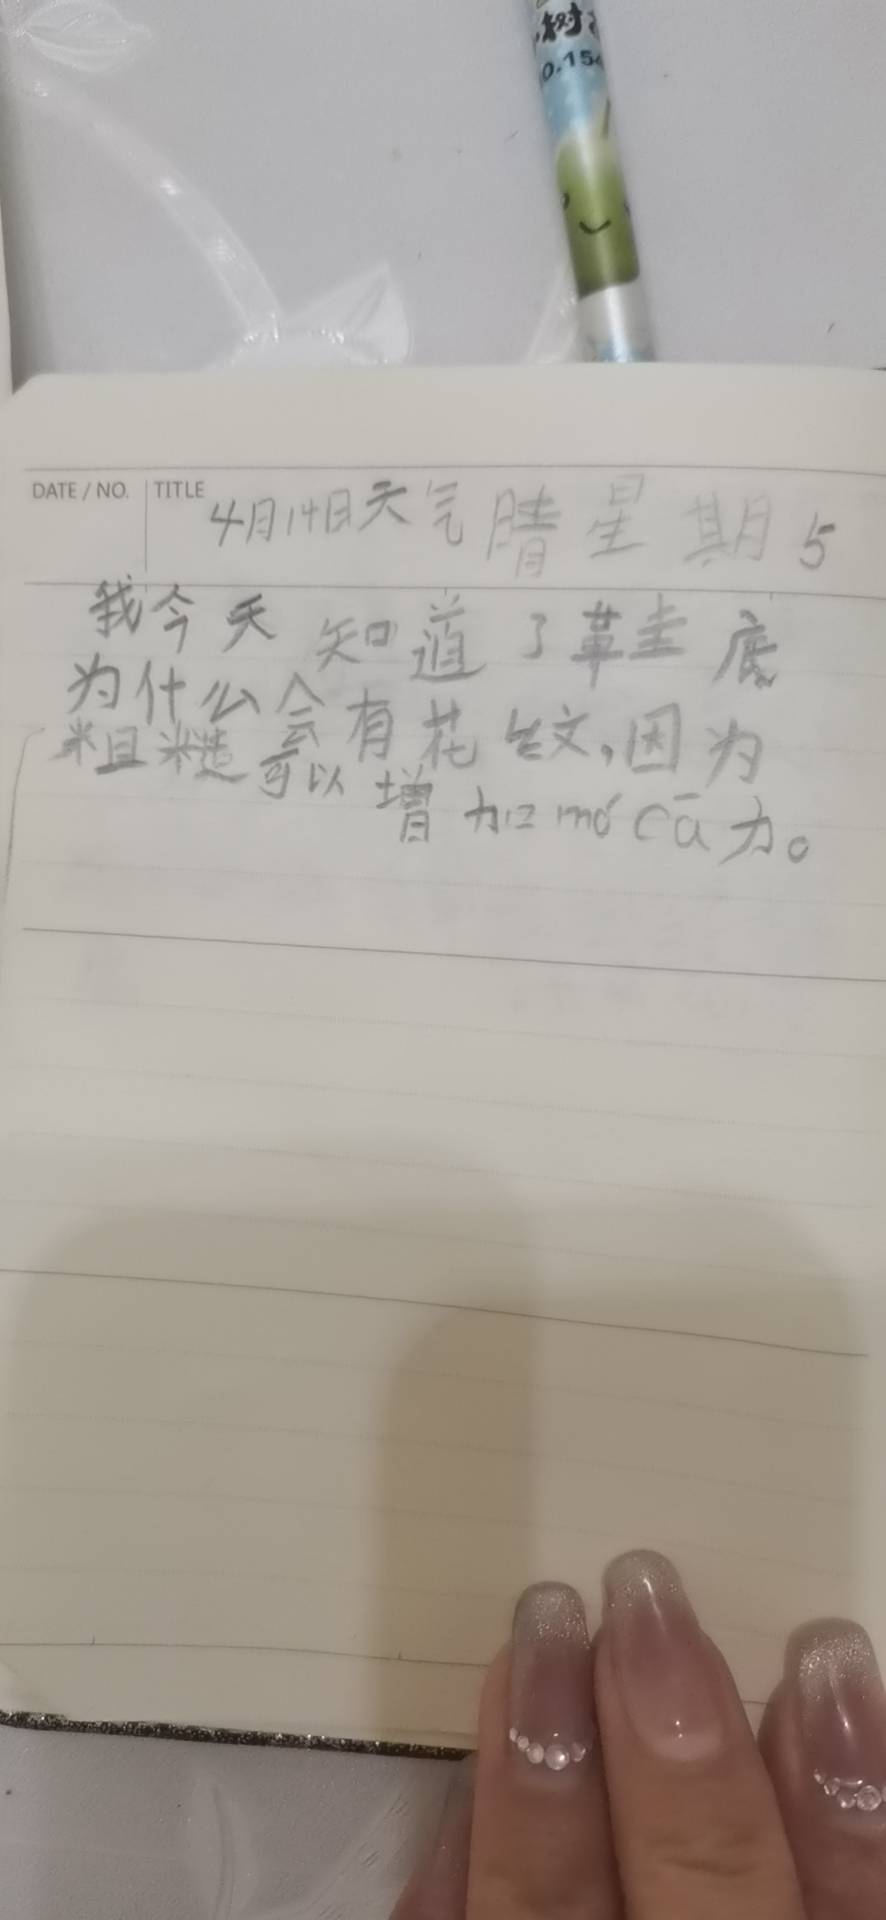 树
0.15
DATE / NO. TITLE 4月14日天气晴星期5
我今天知道了鞋底
为什么会有花纹,因为
粗糙可以增加mócā力。